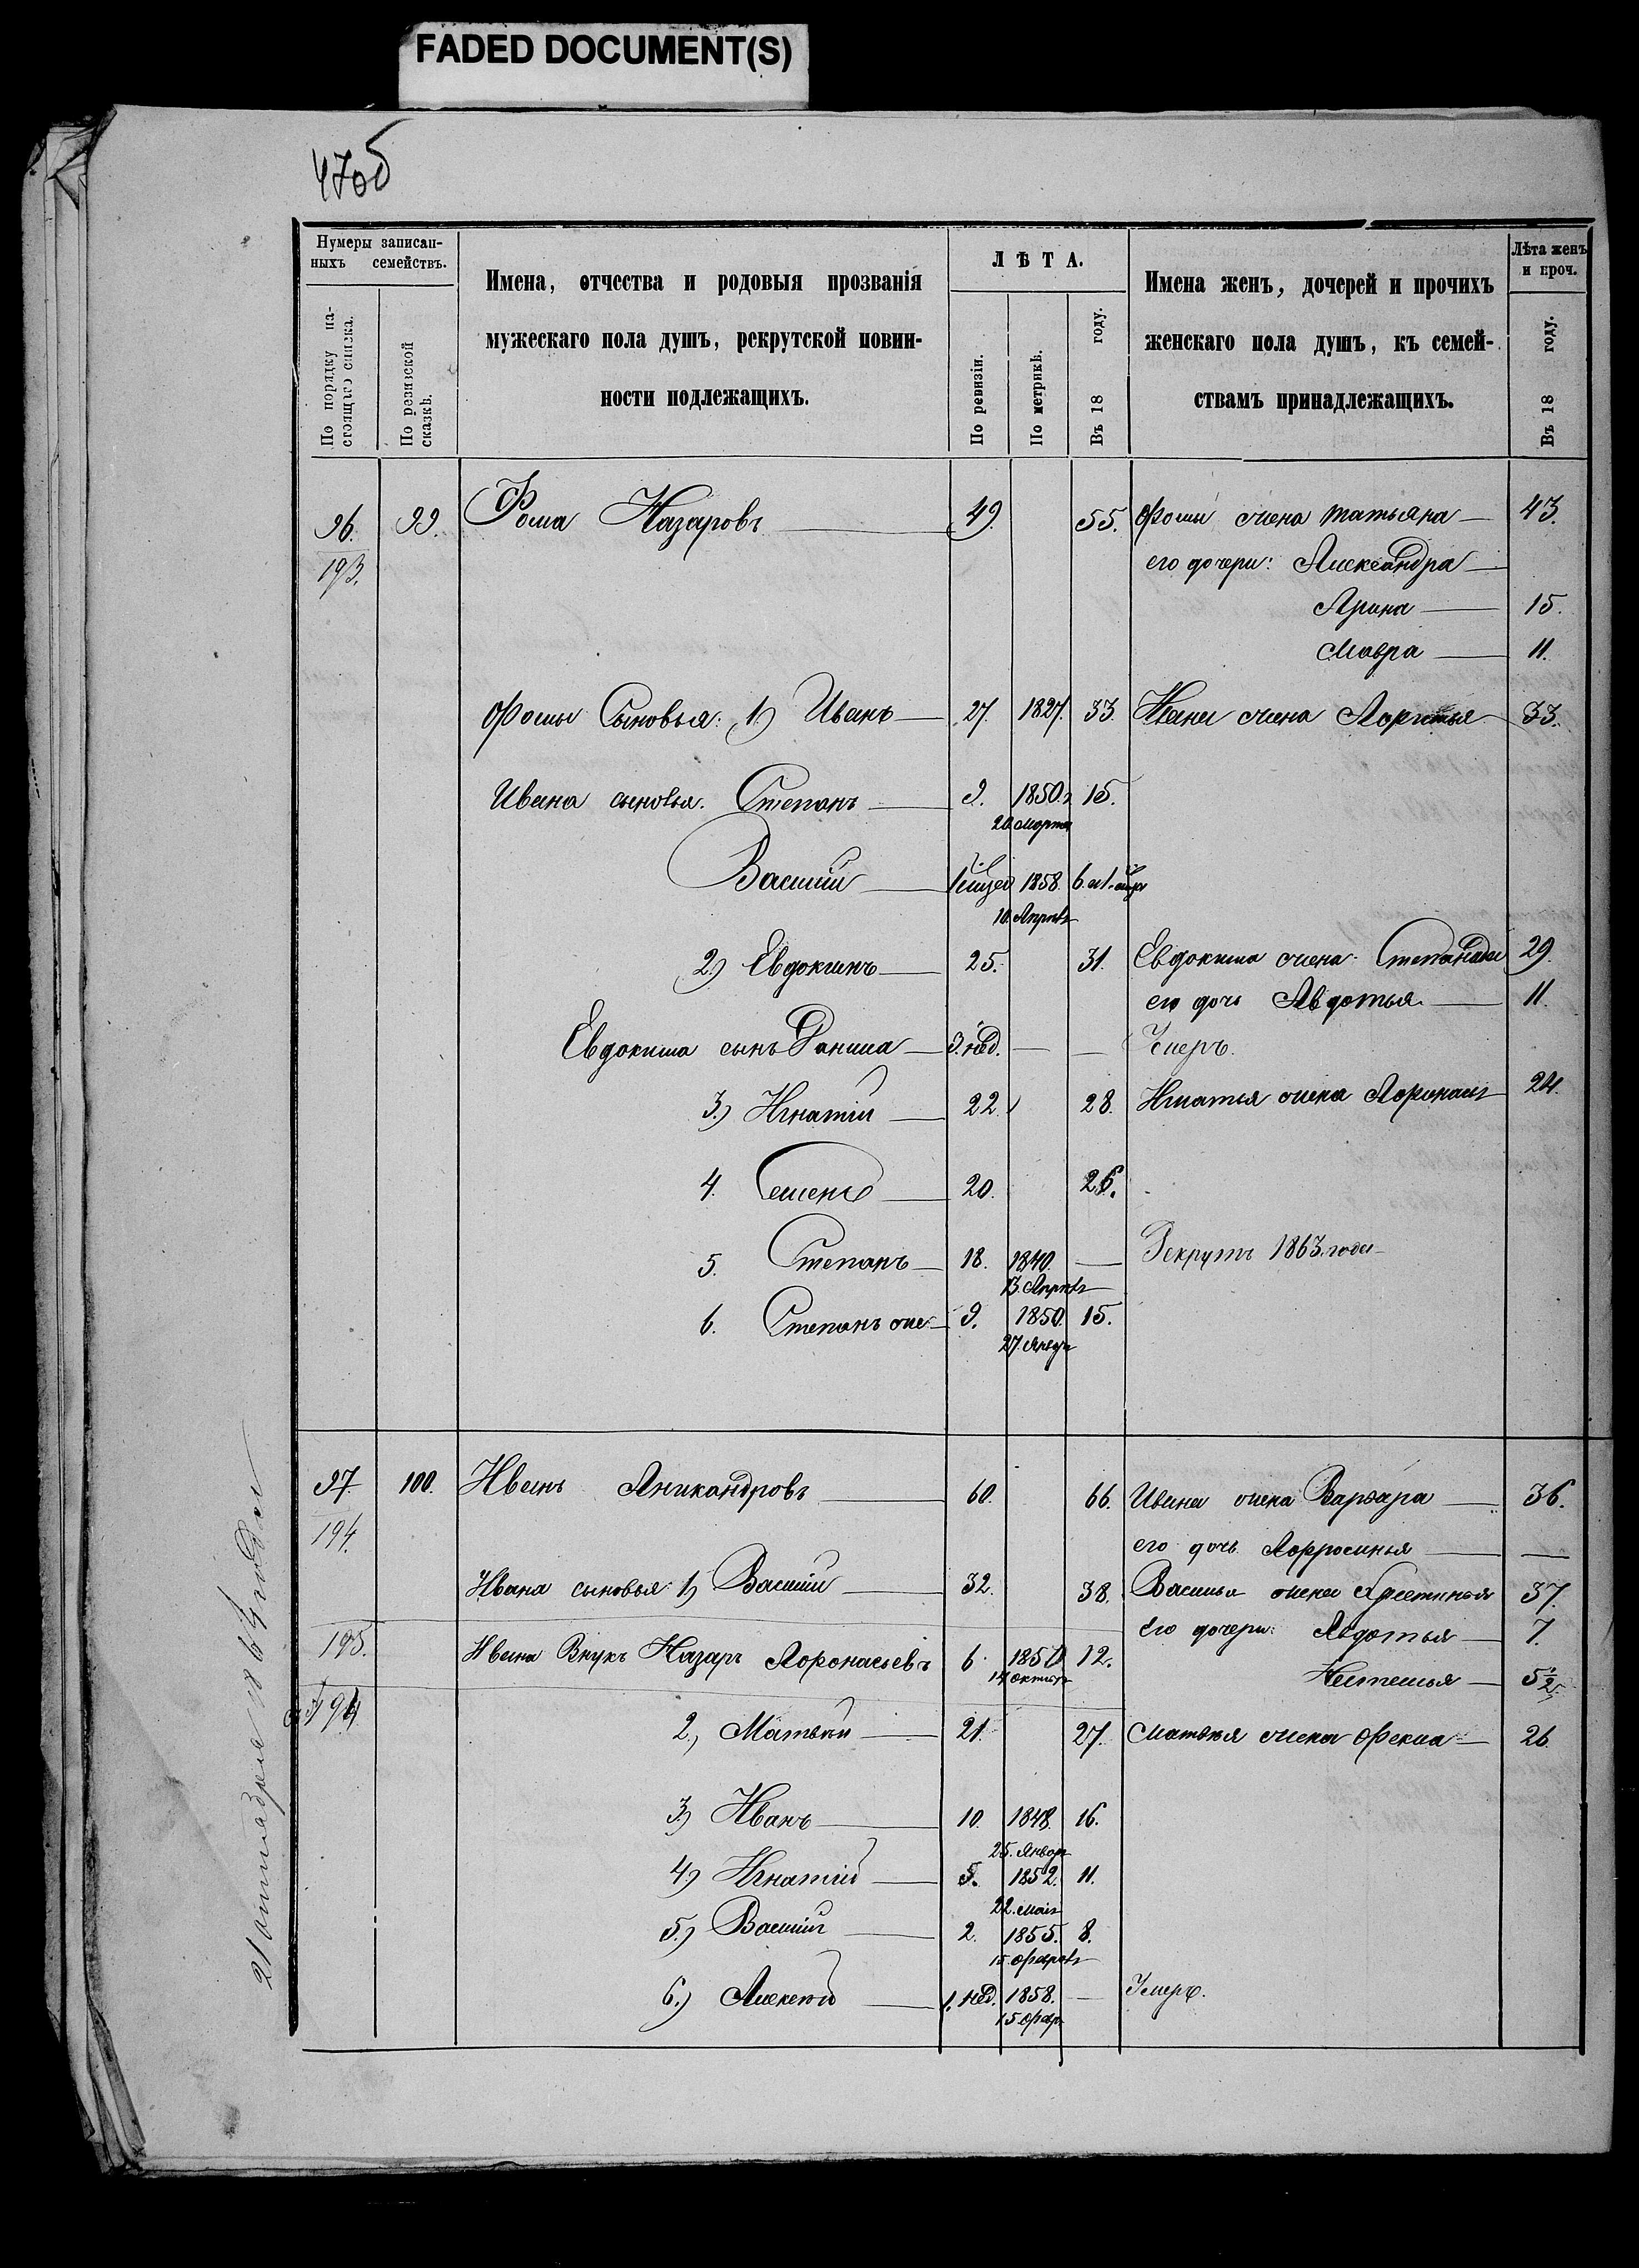 FADED DOCUMENT(S)
47об
Нумеры записан-
ныхъ семействъ.
По порядку на-
стоящаго списка.
По ревизской
сказкѣ.
Имена, отчества и родовыя прозванія
мужескаго пола душъ, рекрутской повин-
ности подлежащихъ.
ЛѢТА.
По ревизіи.
По метрикѣ.
Въ 18 году.
Имена женъ, дочерей и прочихъ
женскаго пола душъ, къ семей-
ствамъ принадлежащихъ.
Лѣта женъ
и проч.
Въ 18 году.
96. 99. Фома Назаровъ 49. 55. Фомы жена Татьяна 43.
193. его дочери: Александра
Арина 15.
Мавра 11.
Фомы Сыновья: 1) Иванъ 27. 1827. 33. Ивана жена 33.
Ивана сыновья. Степанъ 9. 1850.г 15.
20 марта
Василій 1858. 6.
10. Апрѣл
2) Евдокимъ 25. 31. Евдокима жена Степанида 29.
его дочь Авдотья 11.
Евдокима сынъ Данила 3. нѣд. Умеръ.
3.) Игнатій 22. 28. Игнатья жена 24.
4. Семенъ 20. 26.
5. Степанъ 18. 1840. Рекрутъ 1863. года
13. Апрѣл
6. Степанъ же 9. 1850. 15.
27. Янвр
97 100. Иванъ Аникандровъ 60. 66. Ивана жена Варвара 36.
194. его дочь Афросинья
Ивана сыновья 1) Василій 32. 38. Василья жена 37.
Его дочери: Авдотья 7.
195. Ивана Внукъ Назаръ Афонасьевъ 6. 1850 12.
14 октяб
Настасья 5½.
194 2, Матвѣй 21. 27. Матвѣя жена Фекла 26
3.) Иванъ 10. 1848. 16.
25. Январ
4) Игнатій 5. 1852. 11.
22. маія
5.) Василій 2. 1855. 8.
15. февр
6.) Алексѣй 1. нѣд. 1858. Умеръ.
15 февр
21 октября 1864 года